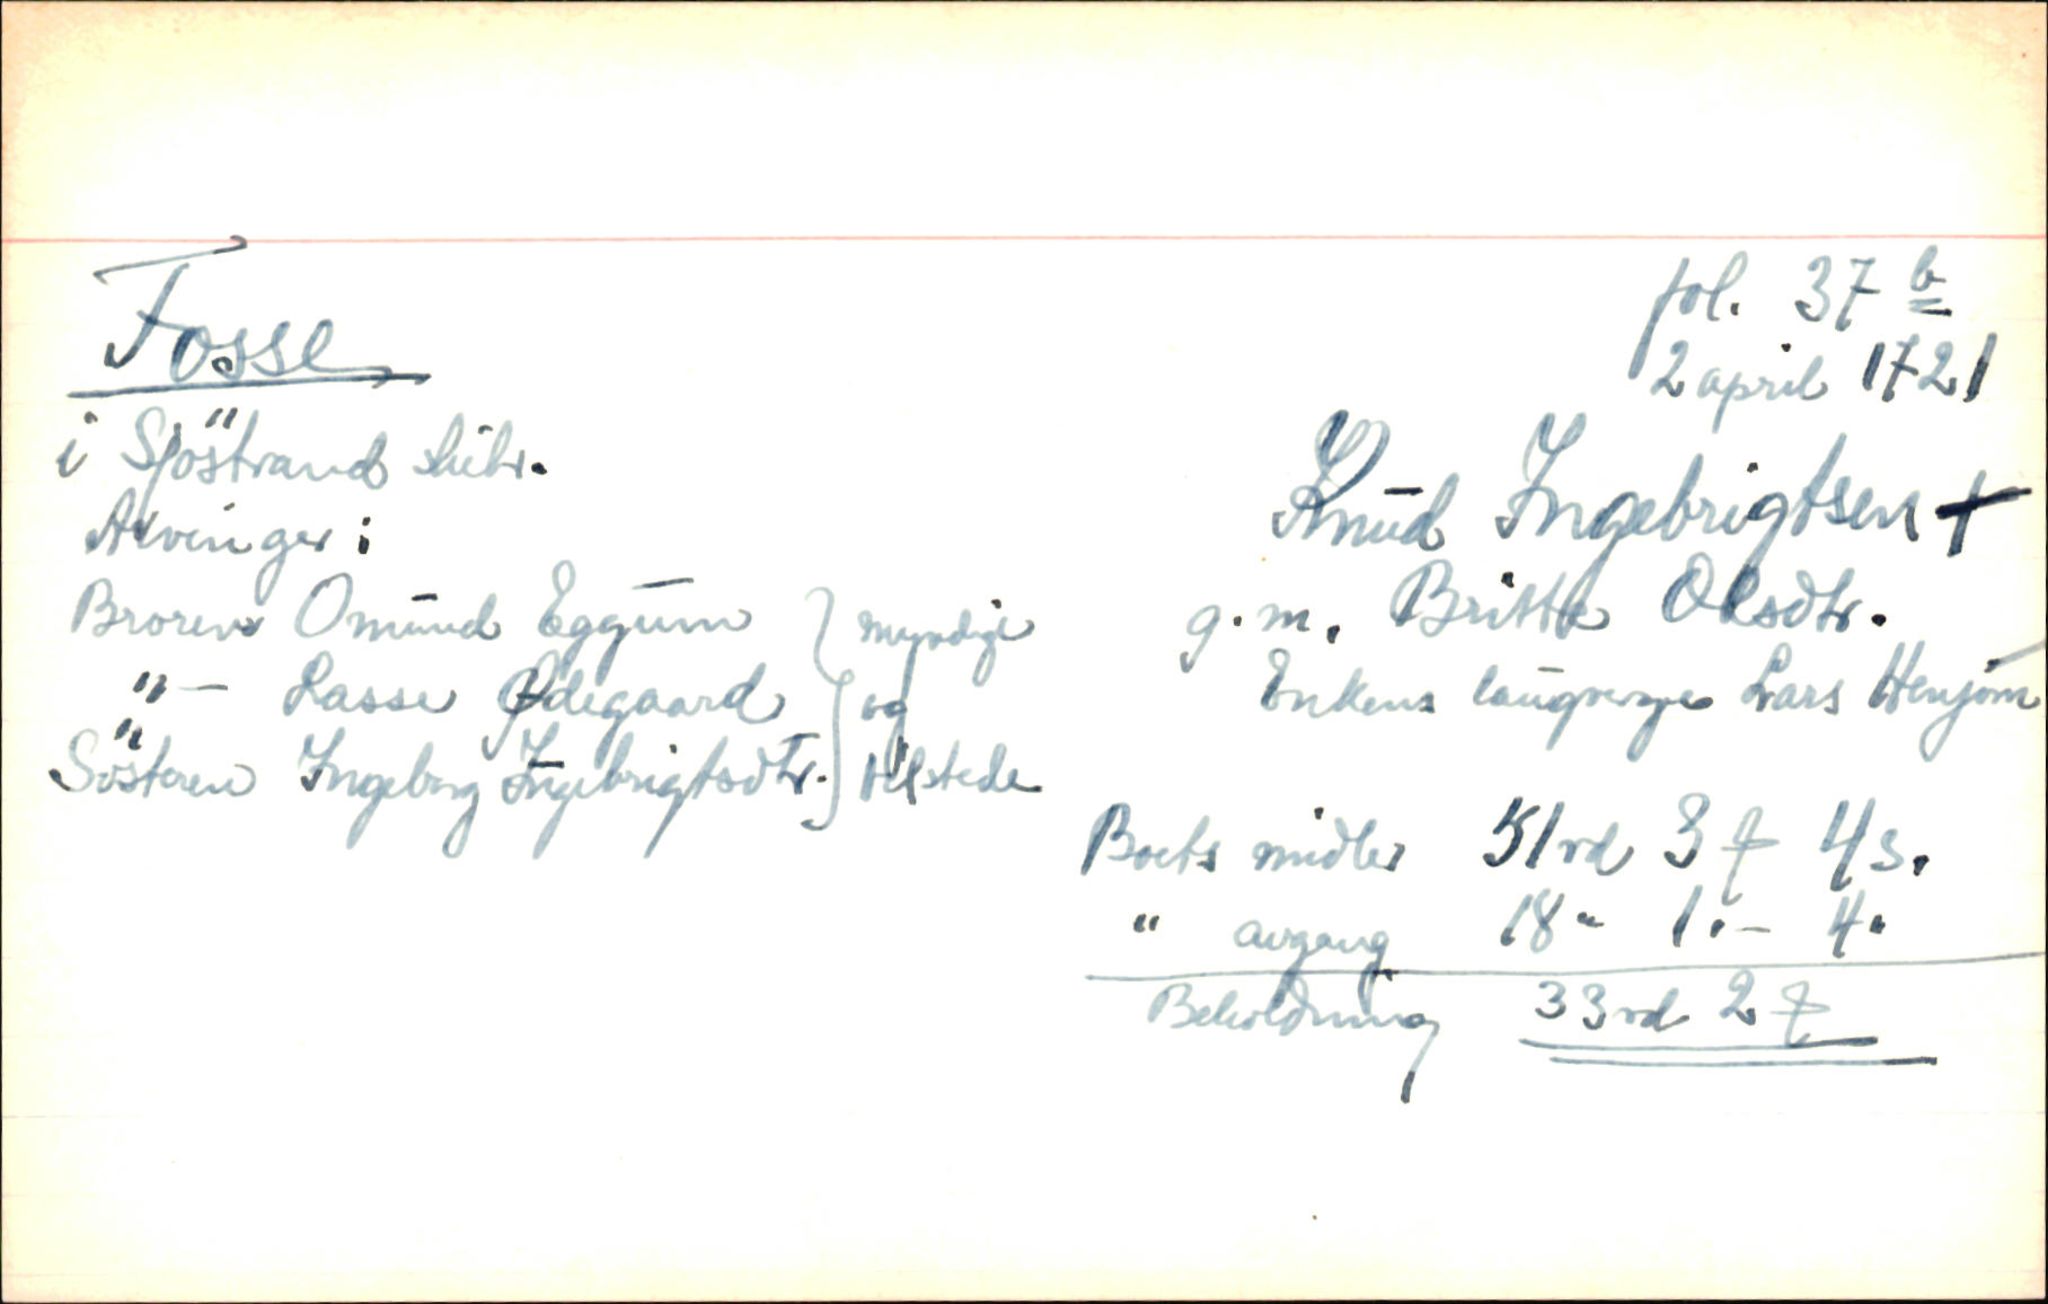 Fosse
i Sjöstrand skibr.
Arvinger:
Broren Omund Eggum } myndige
"— Lasse Ødegaard } og
Sösteren Ingeborg Ingebrigtsdtr. } tilstede
fol. 37 b
2 april 1721
Knud Ingebrigtsen +
g.m. Britta Olsdtr.
Enkens laugverge Lars Henjum
Boets midler 51 rd 3 ƒ 4 s.
" avgang 18 " 1 .- 4 "
Beholdning 33 rd 2 ƒ